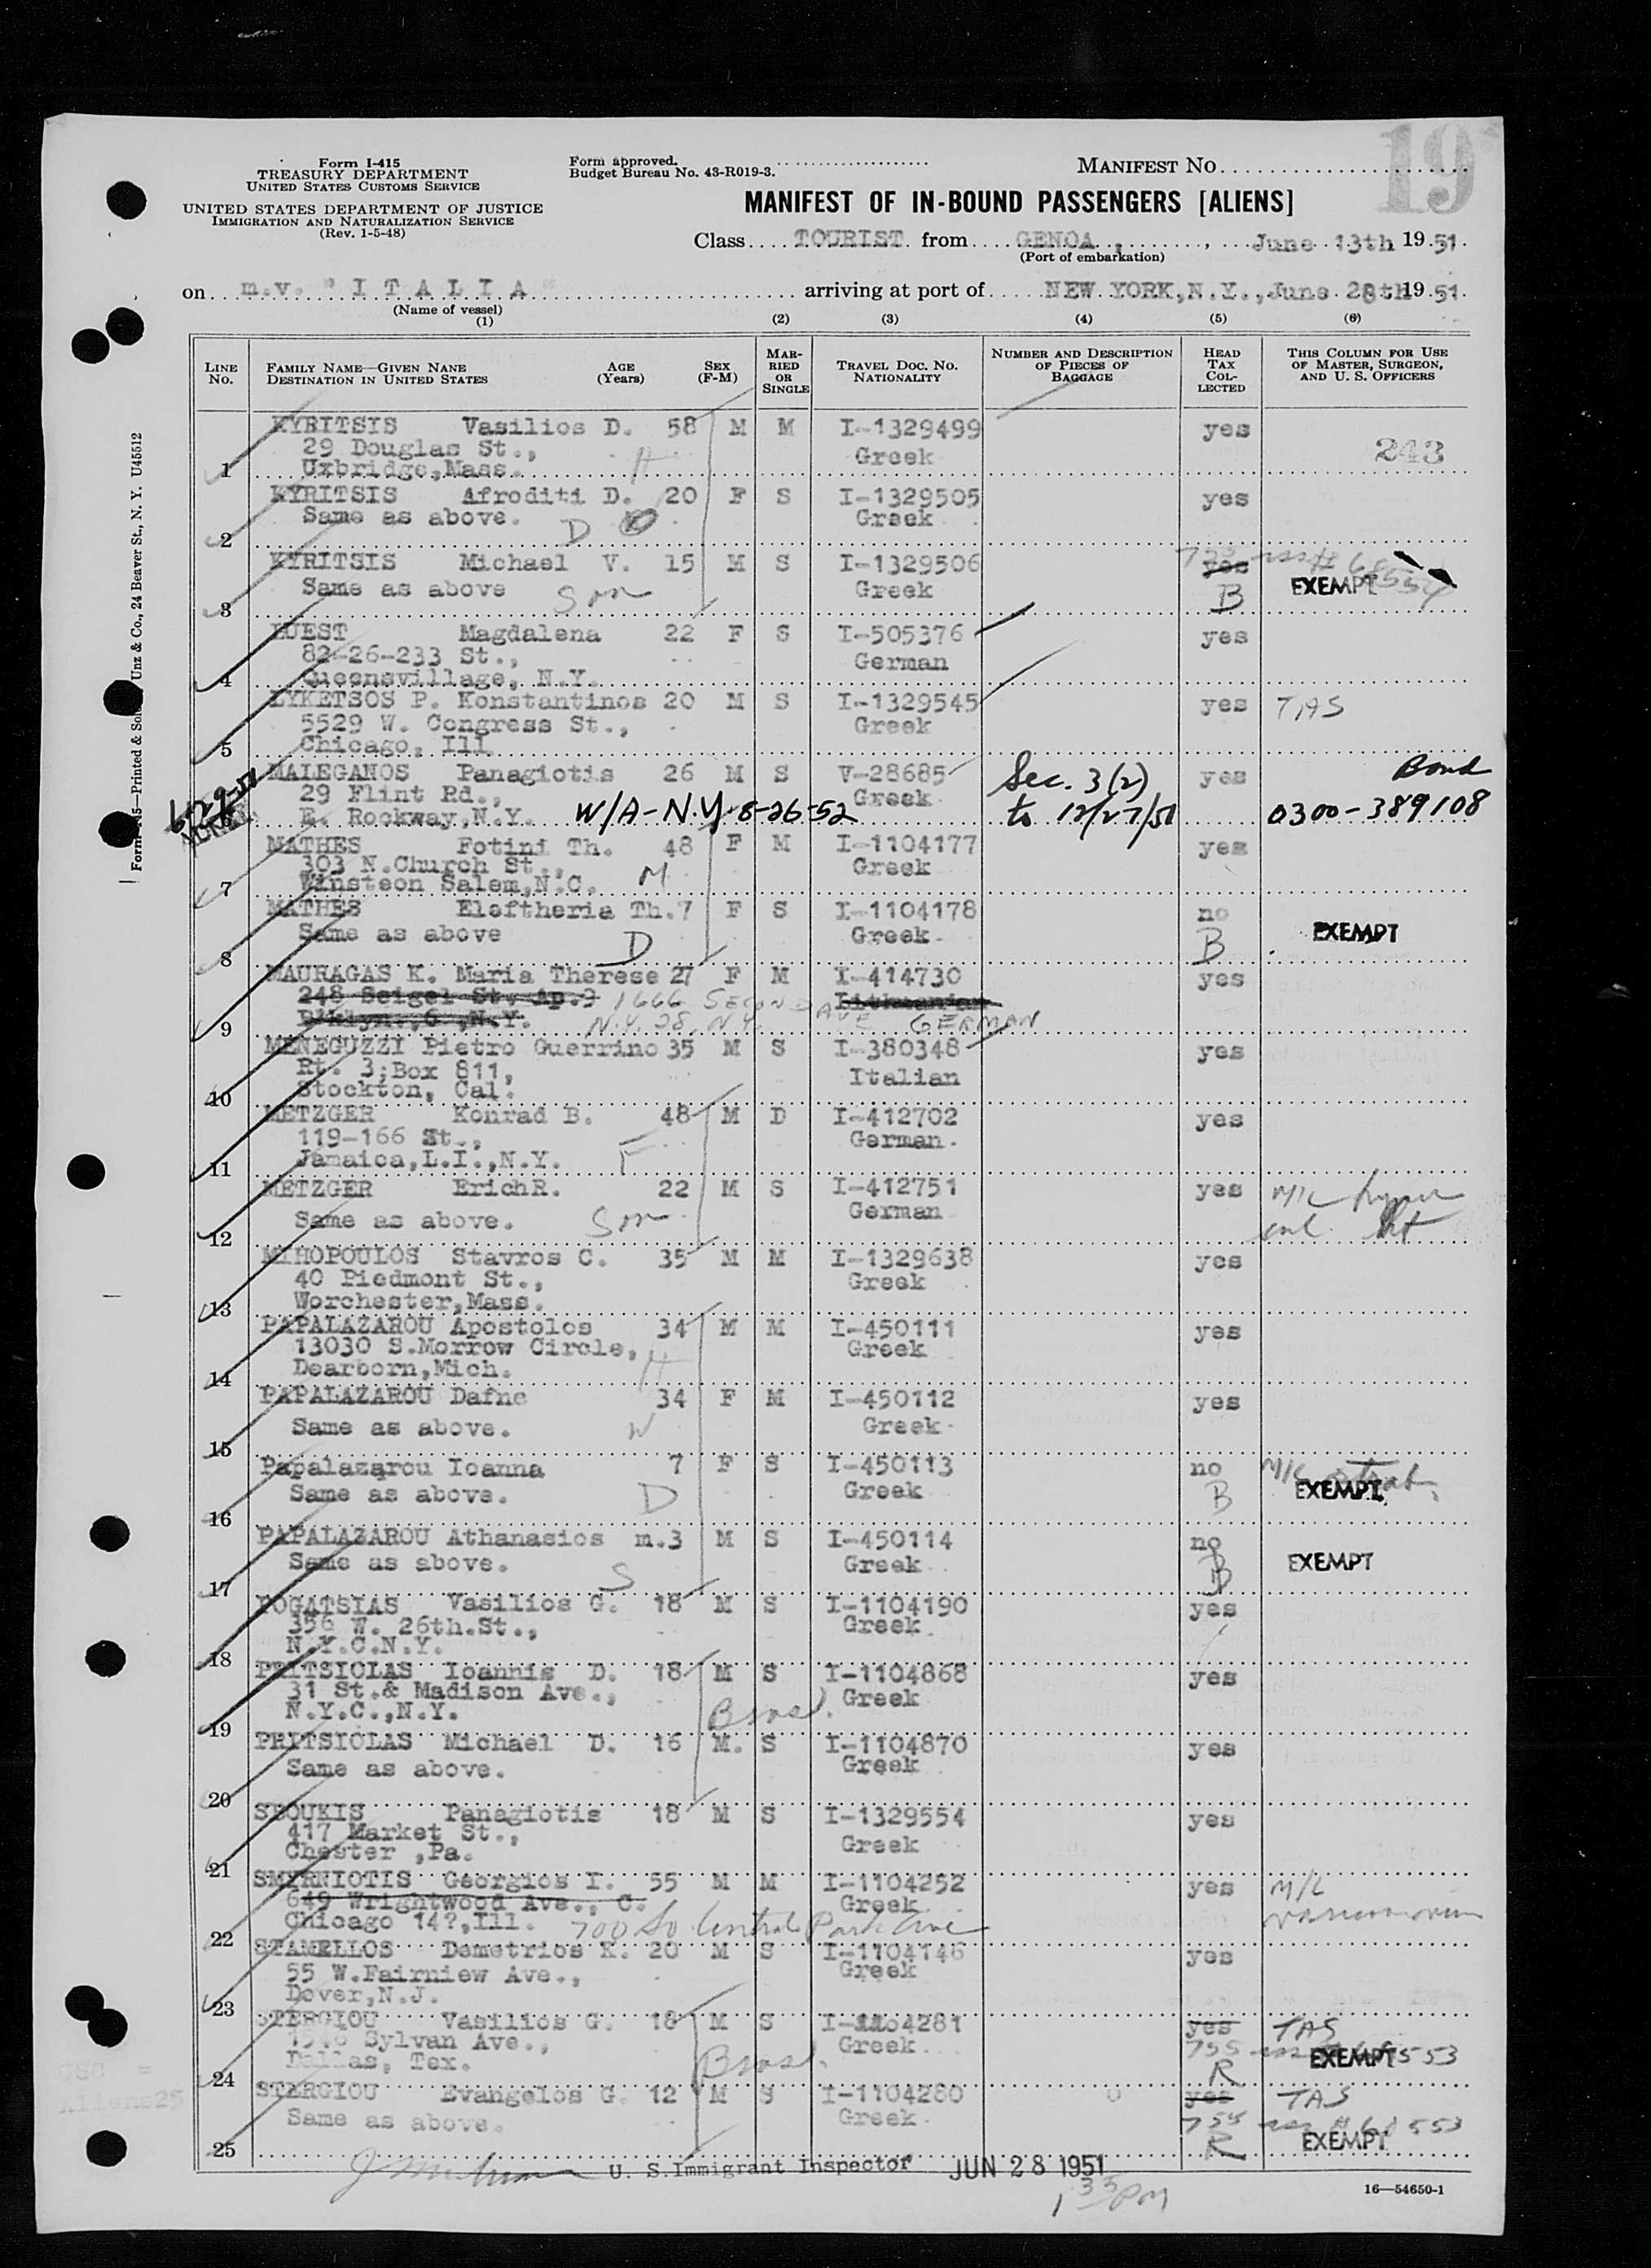 19
Form I-415
TREASURY DEPARTMENT
UNITED STATES CUSTOMS SERVICE
UNITED STATES DEPARTMENT OF JUSTICE
IMMIGRATION AND NATURALIZATION SERVICE
(Rev. 1-5-48)
Form approved.
Budget Bureau No. 43-R019-3.
MANIFEST NO.
MANIFEST OF IN-BOUND PASSENGERS [ALIENS]
Class TOURIST from GENOA, June 13th 1951.
(Port of embarkation)
on m.v. "ITALIA" arriving at port of NEW YORK, N.Y., June 28th 1951.
(Name of vessel)
(1) (2) (3) (4) (5) (6)
LINE NO. FAMILY NAME—GIVEN NANE DESTINATION IN UNITED STATES AGE (Years) SEX (F-M) MARRIED OR SINGLE TRAVEL DOC. NO. NATIONALITY NUMBER AND DESCRIPTION OF PIECES OF BAGGAGE HEAD TAX COLLECTED THIS COLUMN FOR USE OF MASTER, SURGEON, AND U. S. OFFICERS
KYRITSIS Vasilios D. 58 M M I-1329499 yes
29 Douglas St., Greek 243
1 Uxbridge,Mass. H
KYRITSIS Afroditi D. 20 F S I-1329505 yes
Same as above. D Greek
2
KYRITSIS Michael V. 15 M S I-1329506 yes
Same as above Son Greek B EXEMPT
3
LUEST Magdalena 22 F S I-505376 yes
82-26-233 St., German
4 Queensvillage, N.Y.
LYKETSOS P. Konstantinos 20 M S I-1329545 yes TAS
5529 W. Congress St., Greek
5 Chicago, Ill.
MALEGANOS Panagiotis 26 M S V-28685 Sec. 3(2) yes Bond
29 Flint Rd., Greek
E. Rockway,N.Y. W/A-N.Y. 8-26-52 to 12/27/51 0300-389108
MATHES Fotini Th. 48 F M I-1104177 yes
303 N.Church St., Greek
7 Winsteon Salem,N.C. M
MATHES Eleftheria Th. 7 F S I-1104178 no
Same as above D Greek B EXEMPT
8
MAURAGAS K. Maria Therese 27 F M I-414730 yes
248 Seigel St. Ap.9 1666 SECOND AVE Lithuanian
9 Bklyn.,6 ,N.Y. N.Y. 28, N.Y. GERMAN
MENEGUZZI Pietro Guerrino 35 M S I-380348 yes
Rt. 3;Box 811, Italian
10 Stockton, Cal.
METZGER Konrad B. 48 M D I-412702 yes
119-166 St., German
11 Jamaica,L.I.,N.Y. F
METZGER ErichR. 22 M S I-412751 yes M/C
Same as above. Son German
12
MIHOPOULOS Stavros C. 35 M M I-1329638 yes
40 Piedmont St., Greek
13 Worchester,Mass.
PAPALAZAROU Apostolos 34 M M I-450111 yes
13030 S.Morrow Circle, Greek
14 Dearborn,Mich. H
PAPALAZAROU Dafne 34 F M I-450112 yes
Same as above. W Greek
15
Papalazarou Ioanna 7 F S I-450113 no M/C
Same as above. D Greek B EXEMPT
16
PAPALAZAROU Athanasios m.3 M S I-450114 no
Same as above. S Greek B EXEMPT
17
POGATSIAS Vasilios G. 18 M S I-1104190 yes
356 W. 26th.St., Greek
18 N.Y.C.N.Y.
PRITSIOLAS Ioannis D. 18 M S I-1104868 yes
31 St.& Madison Ave., Greek
19 N.Y.C.,N.Y. Bros.
PRITSIOLAS Michael D. 16 M. S I-1104870 yes
Same as above. Greek
20
SBOUKIS Panagiotis 18 M S I-1329554 yes
417 Market St., Greek
21 Chester ,Pa.
SMYRNIOTIS Georgios I. 55 M M I-1104252 yes M/C
649 Wrightwood Ave., C. Greek
22 Chicago 14?,Ill. 700 So Central Park Ave
STAMELLOS Demetrios K. 20 M S I-1104146 yes
55 W.Fairniew Ave., Greek
23 Dover,N.J.
STERGIOU Vasilios G. 18 M S I-1104281 yes TAS
Sylvan Ave., Greek EXEMPT
24 Dallas, Tex. Bros. R
STERGIOU Evangelos G. 12 M S I-1104280 yes TAS
Same as above. Greek
25 R EXEMPT
U. S. Immigrant Inspector JUN 28 1951
1 35 PM
16—54650-1
Form I-415—Printed & Sold by Unz & Co., 24 Beaver St., N. Y. U45512
USC =
Aliens25